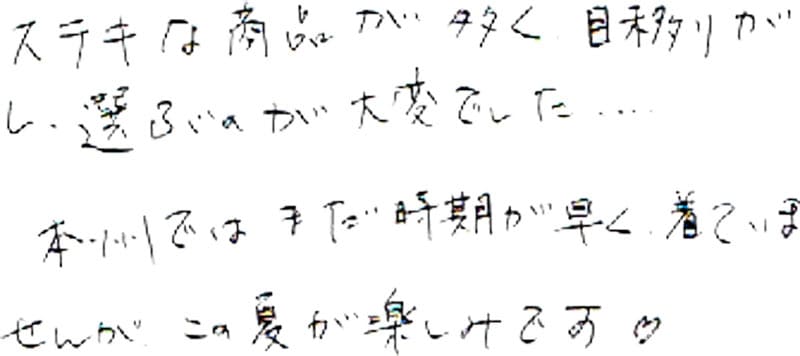 ステキな商品が多く、目移りが
し、選ぶのが大変でした....
本州ではまだ時期が早く、着ていま
せんが、この夏が楽しみです♡